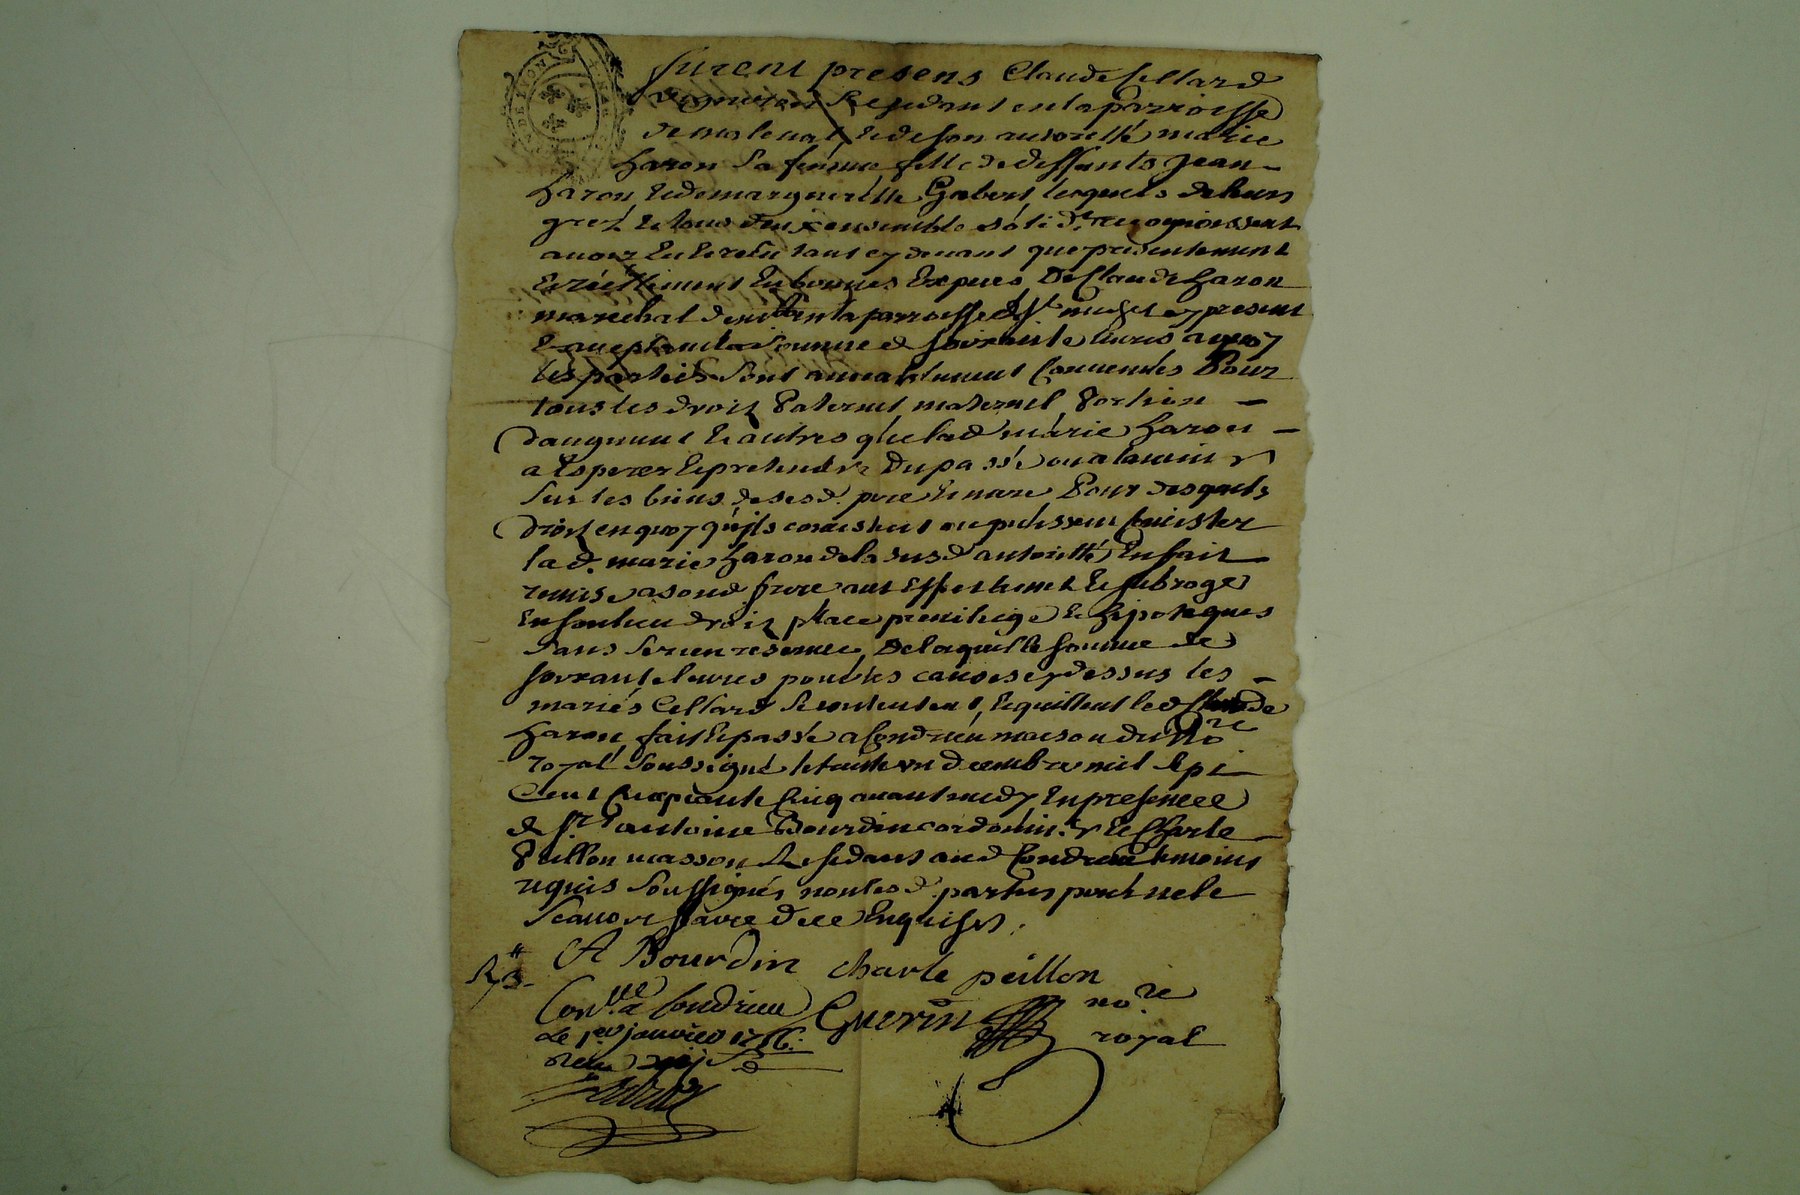 furent presens Claude Cellard
vigneron Residant en la parroisse
de maleval et de son autorité marie
haron sa femme fille de deffunts jean
haron, et de margueritte Gabert, lesquels de leurs
grez et tous deux ensemble solid.t recognoissent
avoir eu et receu tant cy devant que presentement
et réellement en bonnes Especes De Claude haron
marechal demt en la parroisse de St present
et acceptant la somme de soixante livres a quoy
les parties sont amiablement Convenües Pour
tous les droit Paternel, maternel, Portion
daugment et autres que lad marie haron
a Esperer et pretendre Du passé ou a lavenir
sur les biens de sesd. pere et mere, Pour desquels
droit en quoy qu'ils consistent ou puissent Consister
la d. marie haron de la susd autorité, En fait
remise a sond frere aut et subroge
En son lieu droit place privilege et hipoteques
sans se rien reserver, De laquelle somme de
soixante livres pour les causes cy dessus les
mariés Cellard se contentent, et quittent led Claude
haron, fait et passé a Condrieu maison du Nore
royal soussigné le trente un decembre mil sept
Cent Cinquante Cinq avant midy En presence
de Sr antoine Bourdin cordonnier et Charle
Peillon masson Residants aud Condrieu temoins
requis soussignés non les d. parties pour ne le
scavoir faire de ce Enquises.
A Bourdin charle peillon
Conlle a Condrieu Guerin nore
Le 1er janvier 1756. royal